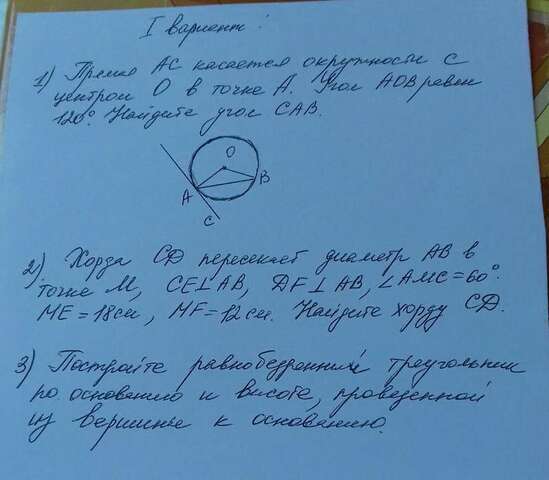 I вариант:
1) Прямая АС касается окружности с
центром О в точке А. Угол АОВ равен
120°. Найдите угол САВ.
O
A
B
C
2) Хорда СД пересекает диаметр АВ в
точке М, СЕ⊥АВ, ДF⊥АВ, ∠АМС=60°.
МЕ=18см, МF=12см. Найдите хорду СД.
3) Постройте равнобедренный треугольник
по основанию и высоте, проведенной
из вершины к основанию.